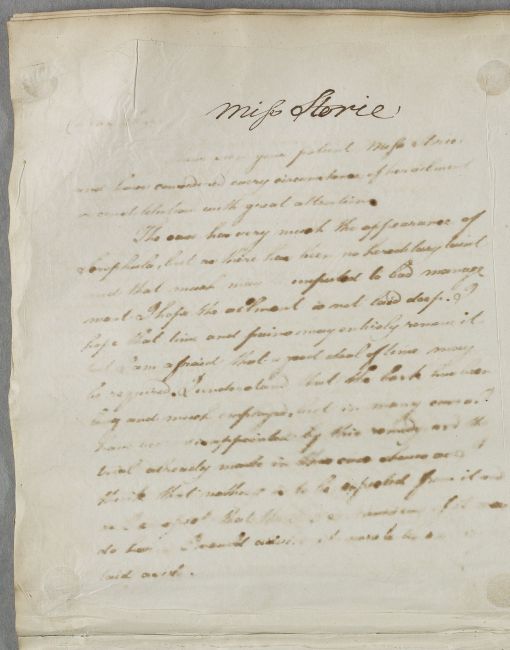 Miss Storie
have seen your patient Miss Storie
and have considered every circumstance of her ailment
constitution with great attention.
The case has very much the appearance of
Scrophula, but as there has been no hereditary taint
and that much may be imputed to bad manage
ment I hope the ailment is not laid deep. I
hope that time and pains may entirely remove it
but I am afraid that a good deal of time may
be required. I understand that the bark has been
long and much employed, but in many cases I
have been disappointed by this remedy and the
trial already made in this case makes me
think that nothing is to be expected from it and
that the
do harm I would advise it to be
laid aside.